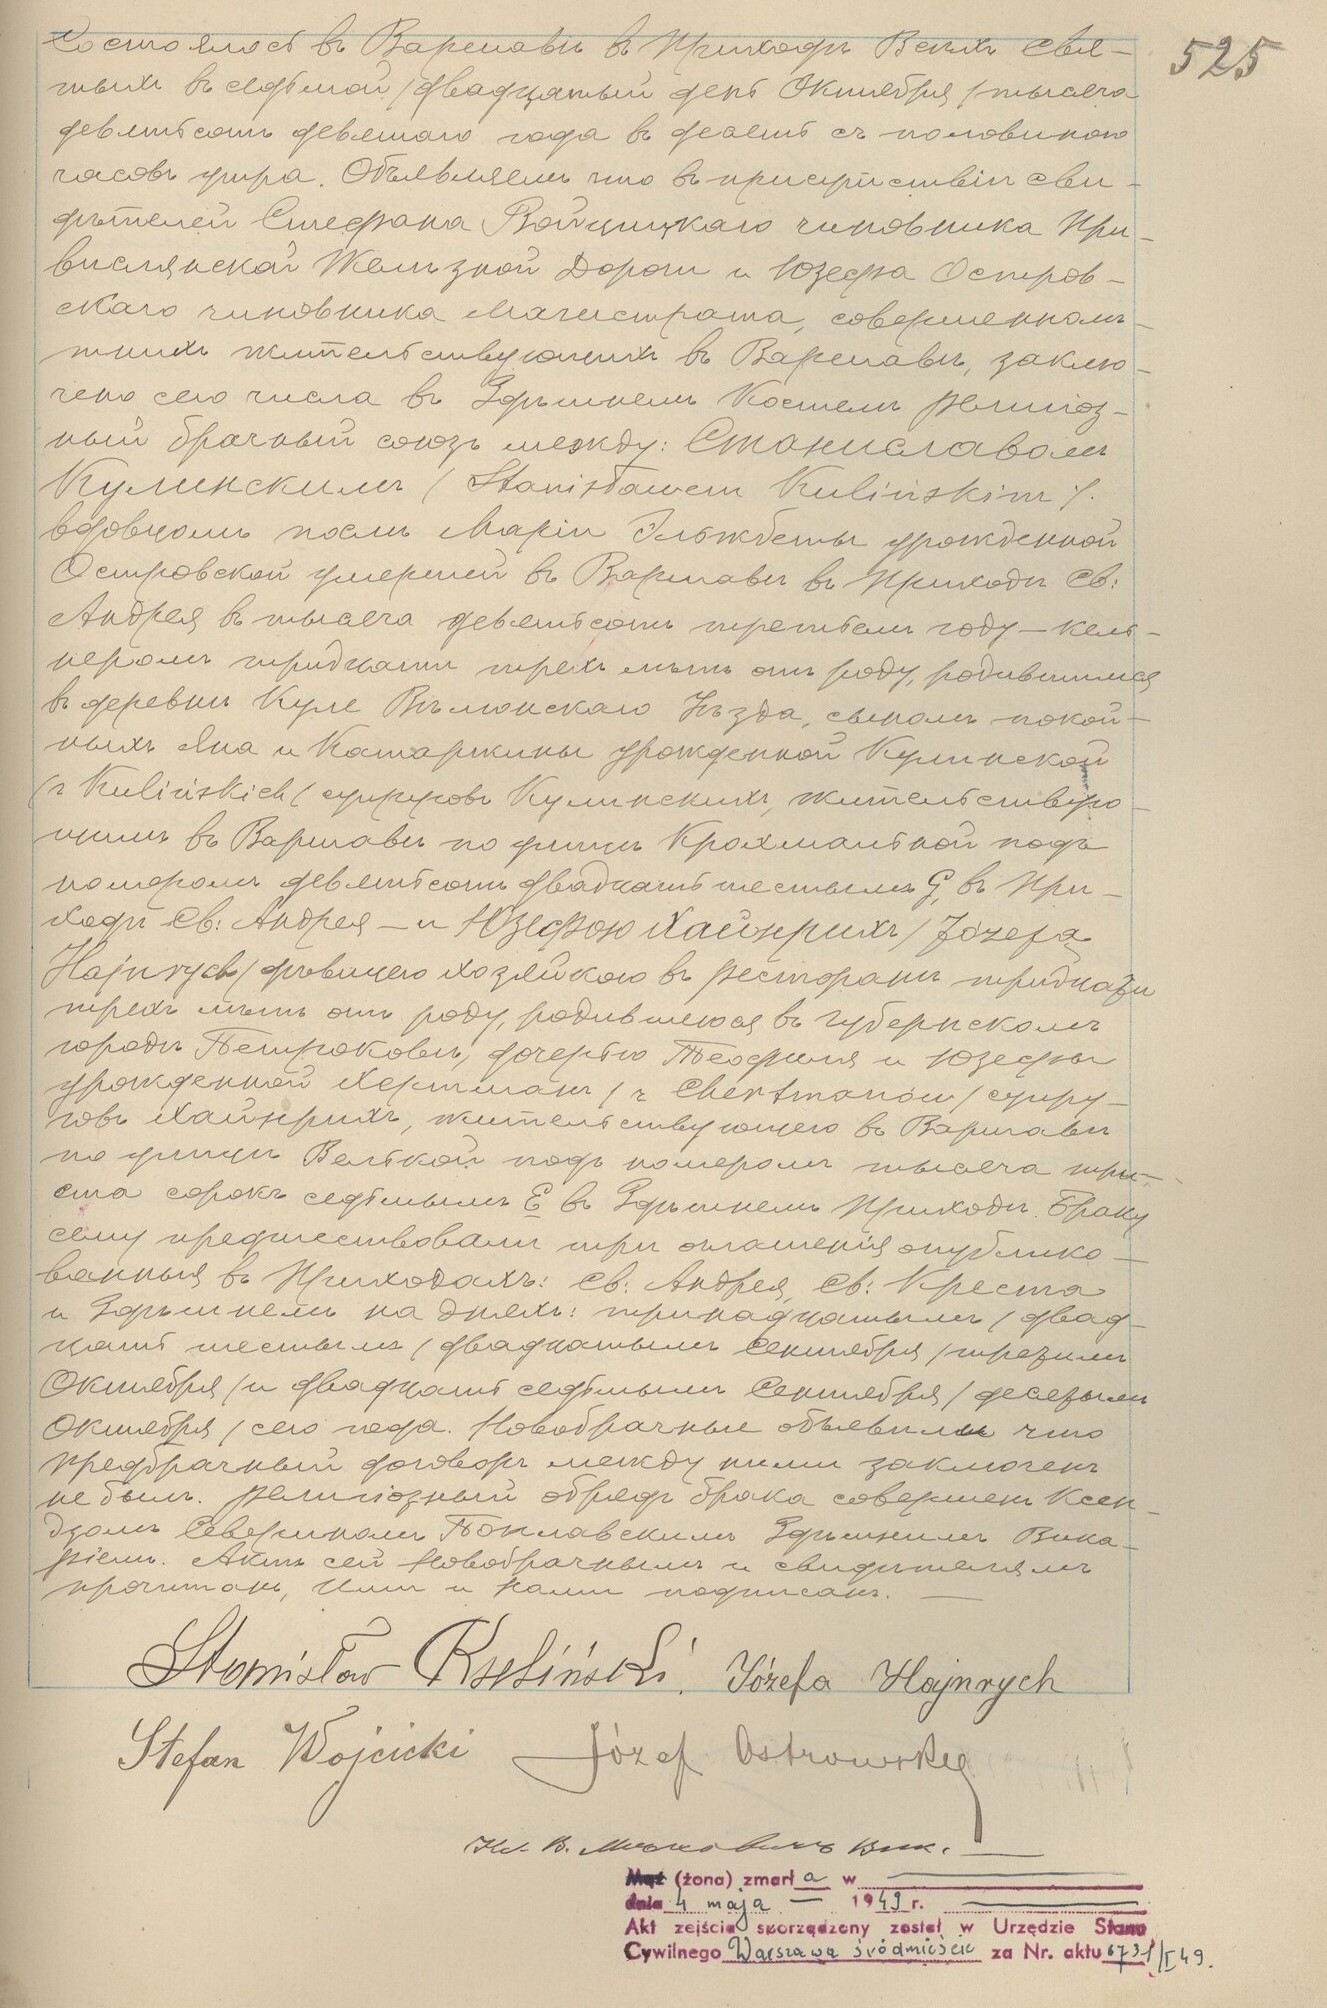 525
Состоялось въ Варшавѣ въ Приходѣ Всѣхъ Свя-
тыхъ въ седьмой /двадцатый день Октября/ тысяча
девятьсотъ девятаго года въ десять съ половиною
часовъ утра. Объявляемъ что въ присутствіи сви-
дѣтелей Стефана Войцицкаго чиновника При-
вислянской Желѣзной Дороги и Юзефа Остров-
скаго чиновника Магистрата, совершеннолѣ-
тнихъ жительствующихъ въ Варшавѣ, заклю-
чено сего числа въ Здѣшнемъ Костелѣ религіоз-
ный брачный союзъ между: Станиславомъ
Кулинскимъ / Stanisławem Kulińskim /.
вдовцомъ послѣ Маріи Эльжбеты урожденной
Островской умершей въ Варшавѣ въ Приходѣ Св:
Андрея въ тысяча девятьсотъ третьемъ году – кель-
неромъ тридцати трехъ лѣтъ отъ роду, родившимся
въ деревнѣ Куле Вѣлюнскаго Уѣзда, сыномъ покой-
ныхъ Яна и Катаржины урожденной Кулинской
/z Kulińskich/ супруговъ Кулинскихъ, жительствую-
щимъ въ Варшавѣ по улицѣ Крохмальной подъ
номеромъ девятьсотъ двадцать шестымъ G, въ При-
ходѣ Св: Андрея – и Юзефою Хайнрихъ / Józefą
Hajnrych/ дѣвицею хозяйкою въ ресторанѣ тридцати
трехъ лѣтъ отъ роду, родившеюся въ губернскомъ
городѣ Петроковѣ, дочерью Теофиля и Юзефы
урожденной Хертманъ / z Chertmanów / супру-
говъ Хайнрихъ, жительствующею въ Варшавѣ
по улицѣ Велькой подъ номеромъ тысяча три-
ста сорокъ седьмымъ E въ Здѣшнемъ Приходѣ. Браку
сему предшествовали три оглашенія опублико-
ванныя въ Приходахъ: Св: Андрея, Св: Креста
и Здѣшнемъ на дняхъ: тринадцатымъ / двад-
цать шестымъ / двадцатымъ Сентября / третьимъ
Октября / и двадцать седьмымъ Сентября / десятымъ
Октября / сего года. Новобрачные объявили что
предбрачный договоръ между ними заключенъ
не былъ. Религіозный обрядъ брака совершенъ Ксен-
дзомъ Севериномъ Поплавскимъ Здѣшнимъ Вика-
ріемъ. Актъ сей Новобрачнымъ и свидѣтелямъ
прочитанъ, Ими и Нами подписанъ. —
Stanisław Kuliński. Józefa Hajnrych
Stefan Wojcicki Józef Ostrowski
Кс. В. Вик.
Mąż (żona) zmarł a w
dnia 4 maja – 1949 r.
Akt zejścia sporządzony został w Urzędzie Stanu
Cywilnego Warszawa śródmieście za Nr. aktu 673/I/49.